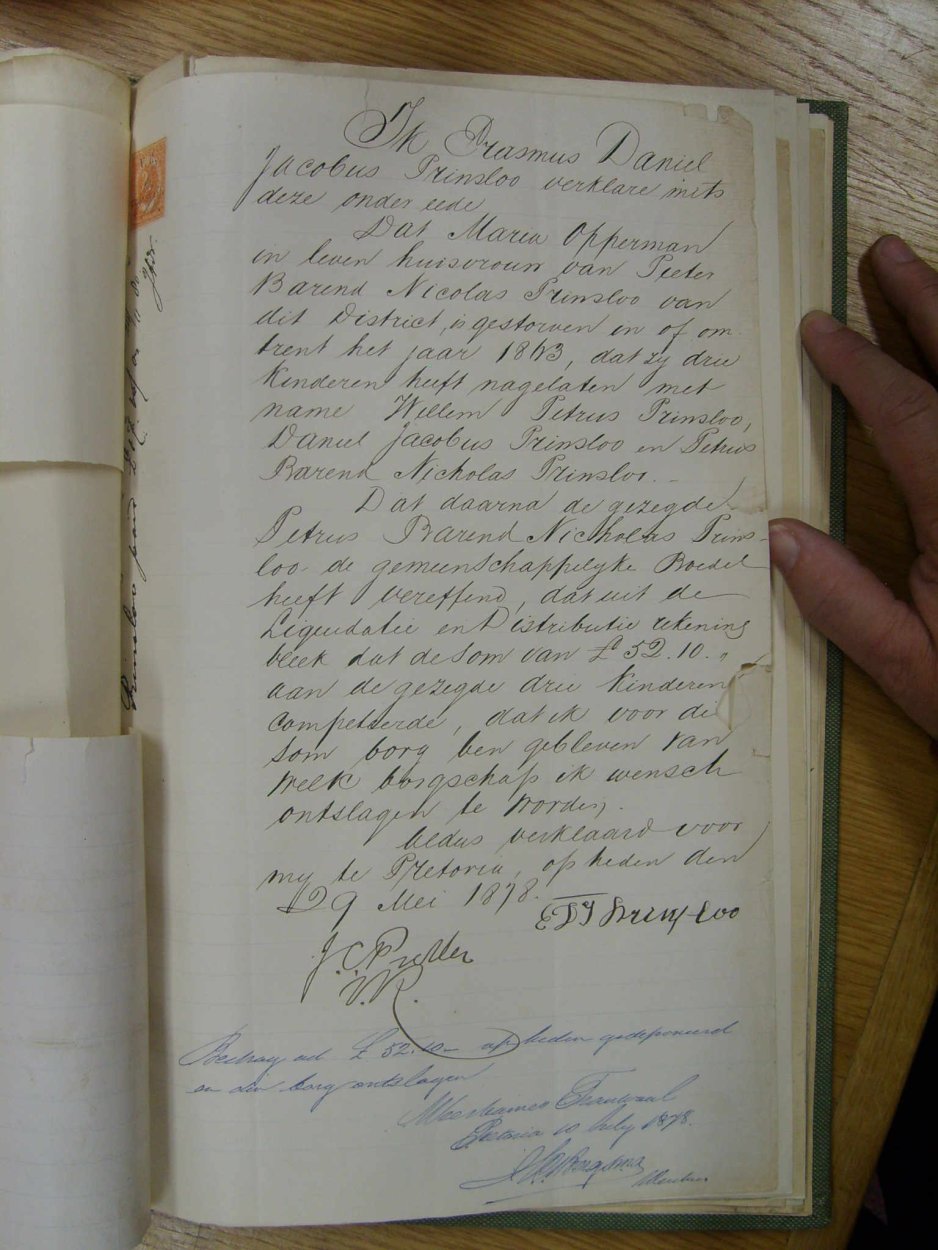 Ik Erasmus Daniel
Jacobus Prinsloo verklare mits
deze onder eede
Dat Maria Opperman
in leven huisvrouw van Pieter
Barend Nicolas Prinsloo van
dit District, is gestorven in of om
trent het jaar 1863, dat zy drie
Kinderen heeft nagelaten met
name Willem Petrus Prinsloo,
Daniel Jacobus Prinsloo en Petrus
Barend Nicholas Prinsloo.
Dat daarna de gezegde
Petrus Barend Nicholas Prins-
loo de gemeenschappelyke Boedel
heeft vereffend, dat uit de
Liquidatie en Distributie rekening
bleek dat de Som van £52.10. "
aan de gezegde drie Kinderen
Competeerde, dat ik voor die
Som borg ben gebleven van
welk borgschap ik wensch
ontslagen te worden,.
Aldus verklaard voor
my te Pretoria, op heden den
29 Mei 1878.
E D J Prinsloo
J. C.
V.R.
Bedrag ad £52.10- op heden gedeponeerd
en den borg ontslagen
Weeskamer Transvaal
Pretoria 10 July 1878.